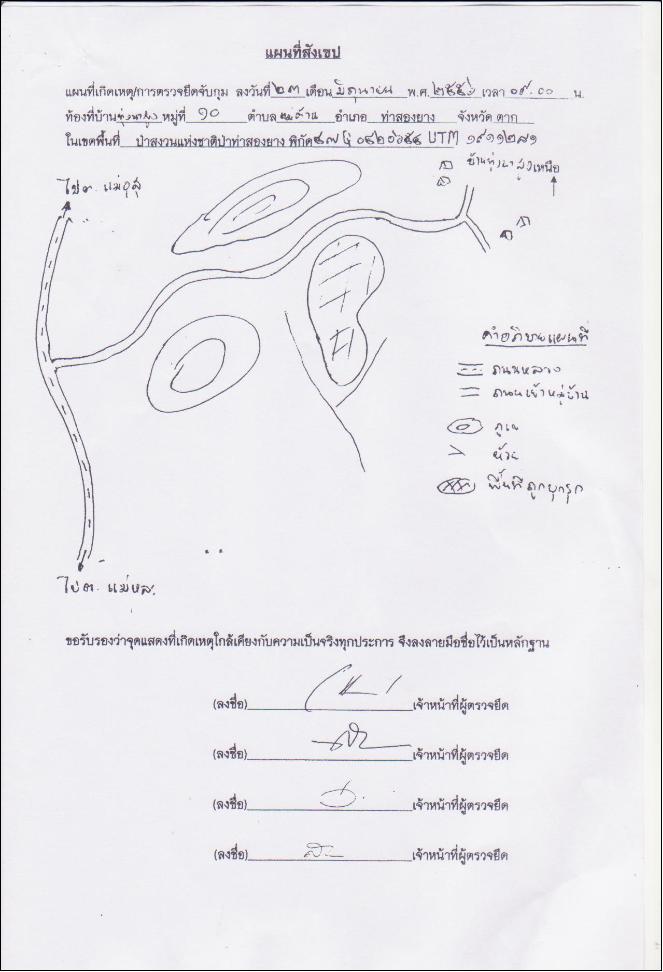 แผนที่สังเขป
แผนที่เกิดเหตุ/การตรวจยึดจับกุม ลงวันที่ ๒๓ เดือน มิถุนายน พ.ศ. ๒๕๕๖ เวลา ๐๙.๐๐ น.
ท้องที่บ้าน ทุ่งนาสูง หมู่ที่ ๑๐ ตำบล อำเภอ ท่าสองยาง จังหวัด ตาก
ในเขตพื้นที่ ป่าสงวนแห่งชาติป่าท่าสองยาง พิกัด UTM ๑๙๑๑๒๘๑
ไป ต. แม่อุสุ
บ้านทุ่งนาสูง
เหนือ
คำอธิบายแผนที่
ถนนหลวง
ถนนเข้าหมู่บ้าน
ภูเขา
ห้วย
พื้นที่ถูกบุกรุก
ไป ต. แม่หละ
ขอรับรองว่าจุดแสดงที่เกิดเหตุใกล้เคียงกับความเป็นจริงทุกประการ จึงลงลายมือชื่อไว้เป็นหลักฐาน
(ลงชื่อ) เจ้าหน้าที่ผู้ตรวจยึด
(ลงชื่อ) เจ้าหน้าที่ผู้ตรวจยึด
(ลงชื่อ) เจ้าหน้าที่ผู้ตรวจยึด
(ลงชื่อ) เจ้าหน้าที่ผู้ตรวจยึด